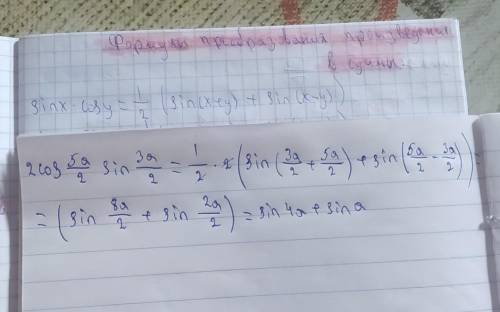 Формулы преобразования произведения
в суммы
sinx · cosy = 1/2 (sin(x+y) + sin(x-y))
2cos 5a/2 sin 3a/2 = 1/2 · 2 (sin(3a/2 + 5a/2) + sin(5a/2 - 3a/2)) =
= (sin 8a/2 + sin 2a/2) = sin4a + sin a